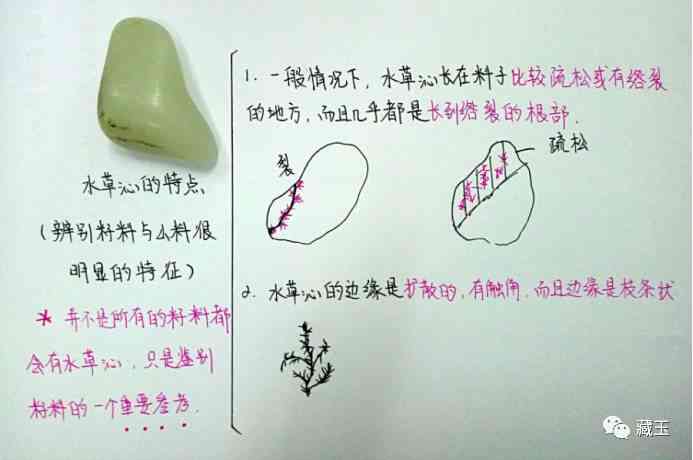 水草沁的特点、
(辨别籽料与山料很
明显的特征)
* 并不是所有的籽料都
会有水草沁，只是鉴别
籽料的一个重要参考.
1. 一般情况下，水草沁长在料子比较疏松或有绺裂
的地方，而且几乎都是长到绺裂的根部.
裂
疏松
2. 水草沁的边缘是扩散的，有触角，而且边缘是枝条状
藏玉